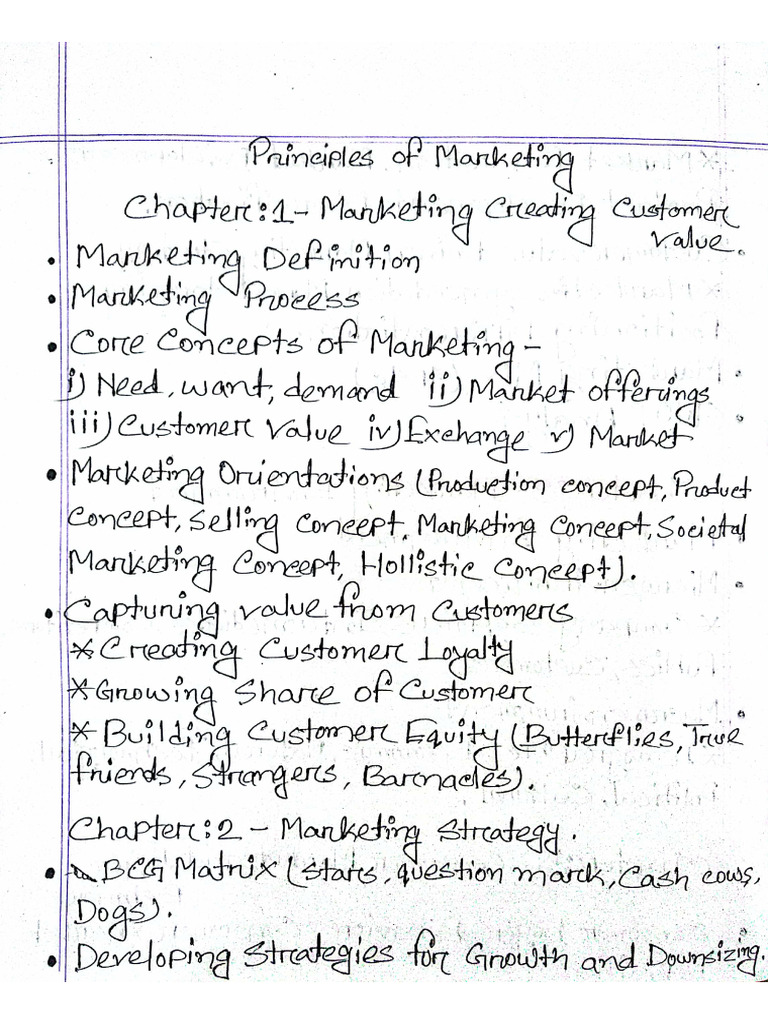 Principles of Marketing
Chapter:1 - Marketing Creating Customer
Value.
• Marketing Definition
• Marketing Process
• Core Concepts of Marketing -
i) Need, want, demand ii) Market offerings
iii) Customer Value iv) Exchange v) Market
• Marketing Orientations (Production concept, Product
Concept, Selling Concept, Marketing Concept, Societal
Marketing Concept, Hollistic Concept).
• Capturing value from Customers
* Creating Customer Loyalty
* Growing Share of Customer
* Building Customer Equity (Butterflies, True
friends, Strangers, Barnacles).
Chapter:2 - Marketing Strategy.
• BCG Matrix (Stars, question mark, Cash cows,
Dogs).
• Developing Strategies for Growth and Downsizing.